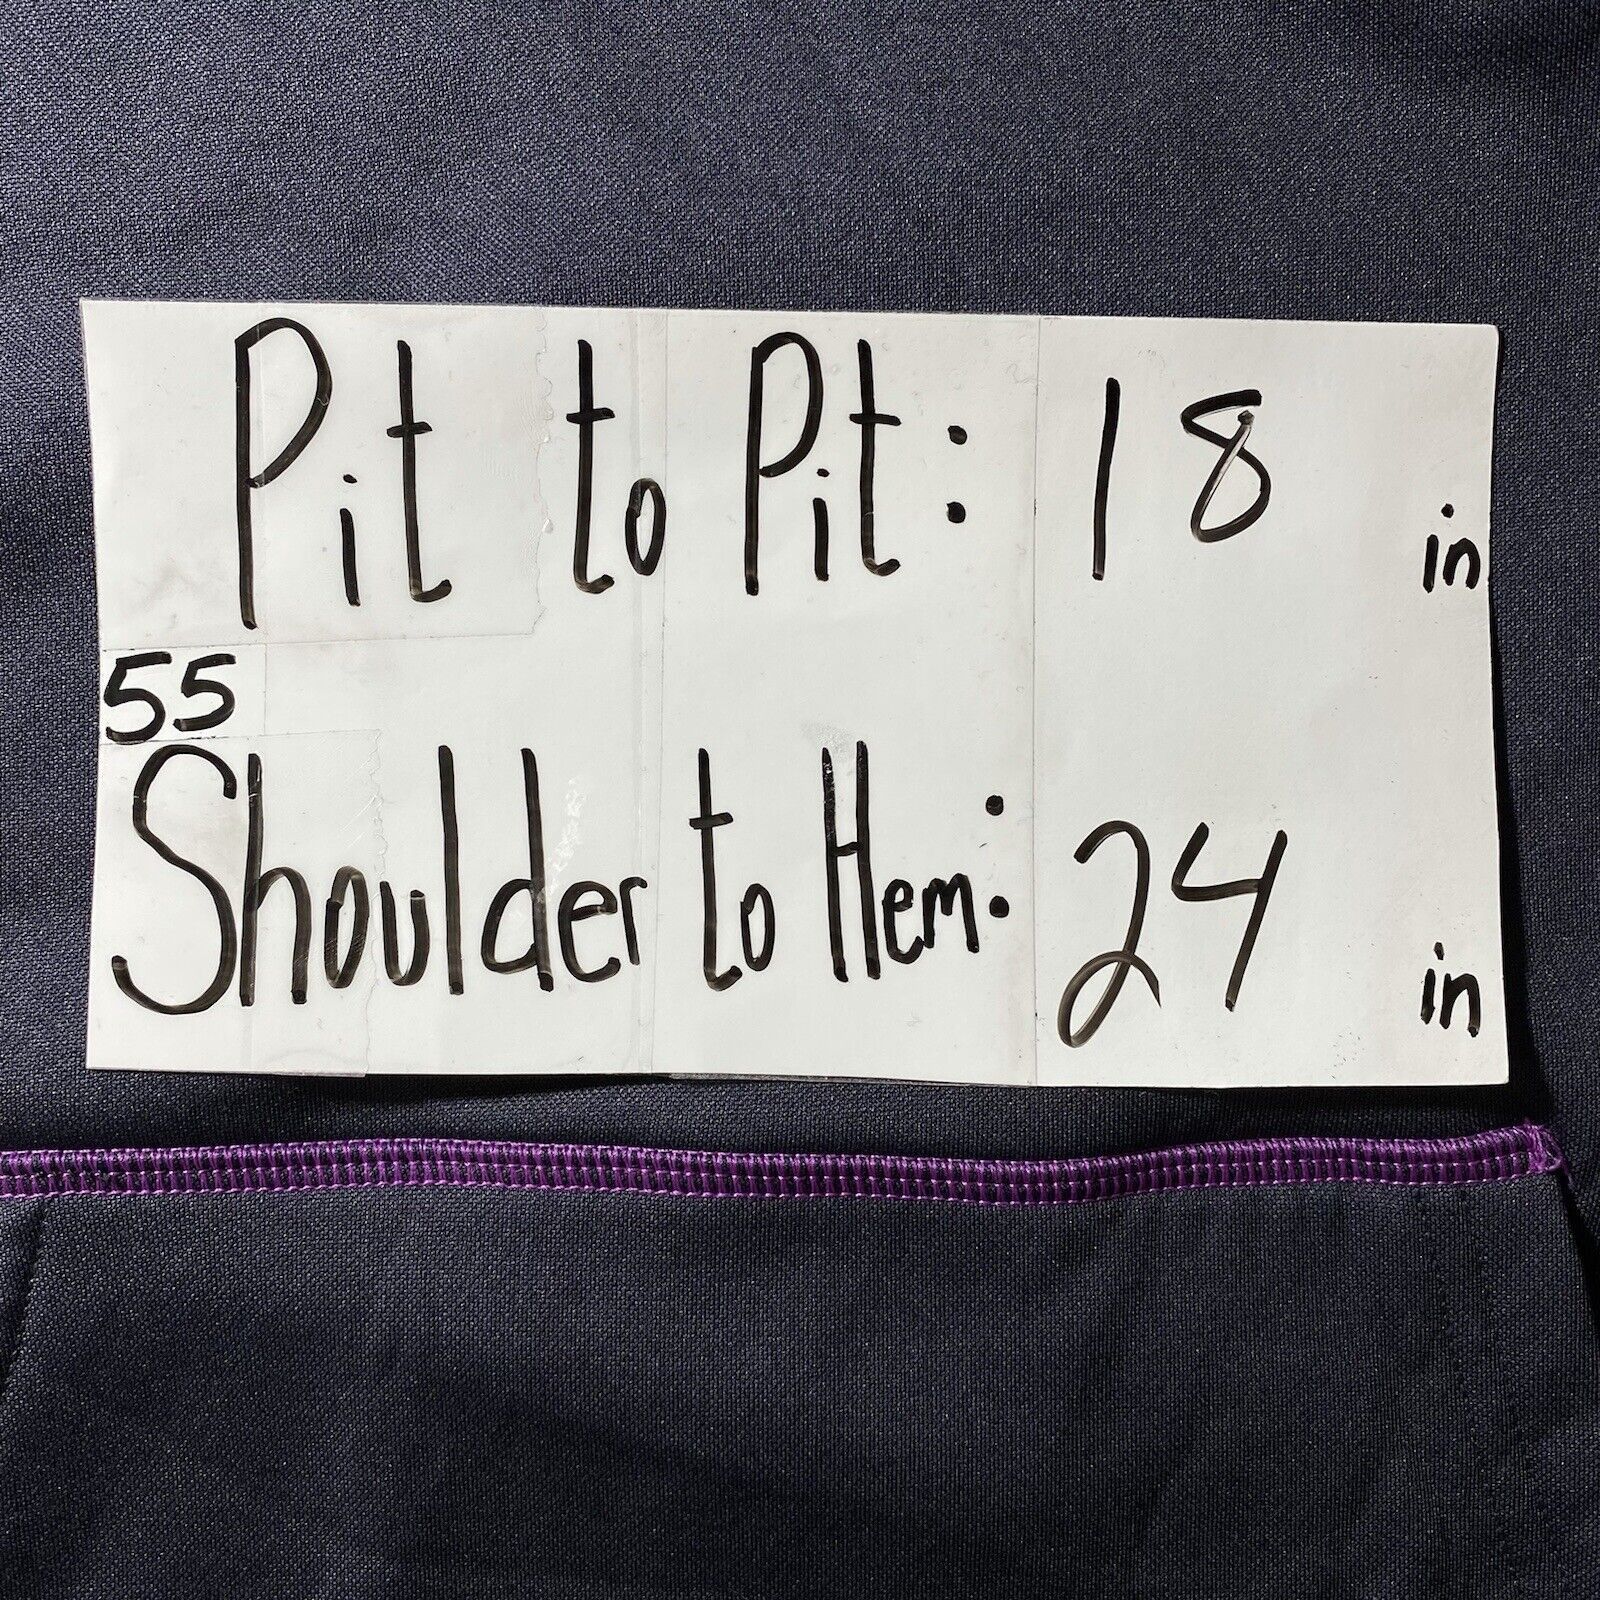 Pit to Pit: 18 in
55
Shoulder to Hem: 24 in